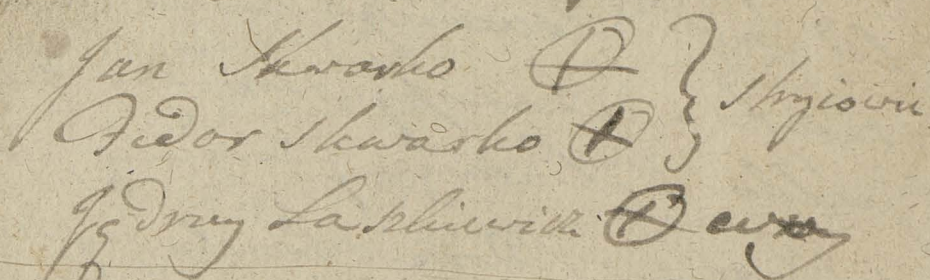 Jan Skwarko
Fiedor Skwarko Stryiowie
Jędrzy Laszkiewicz